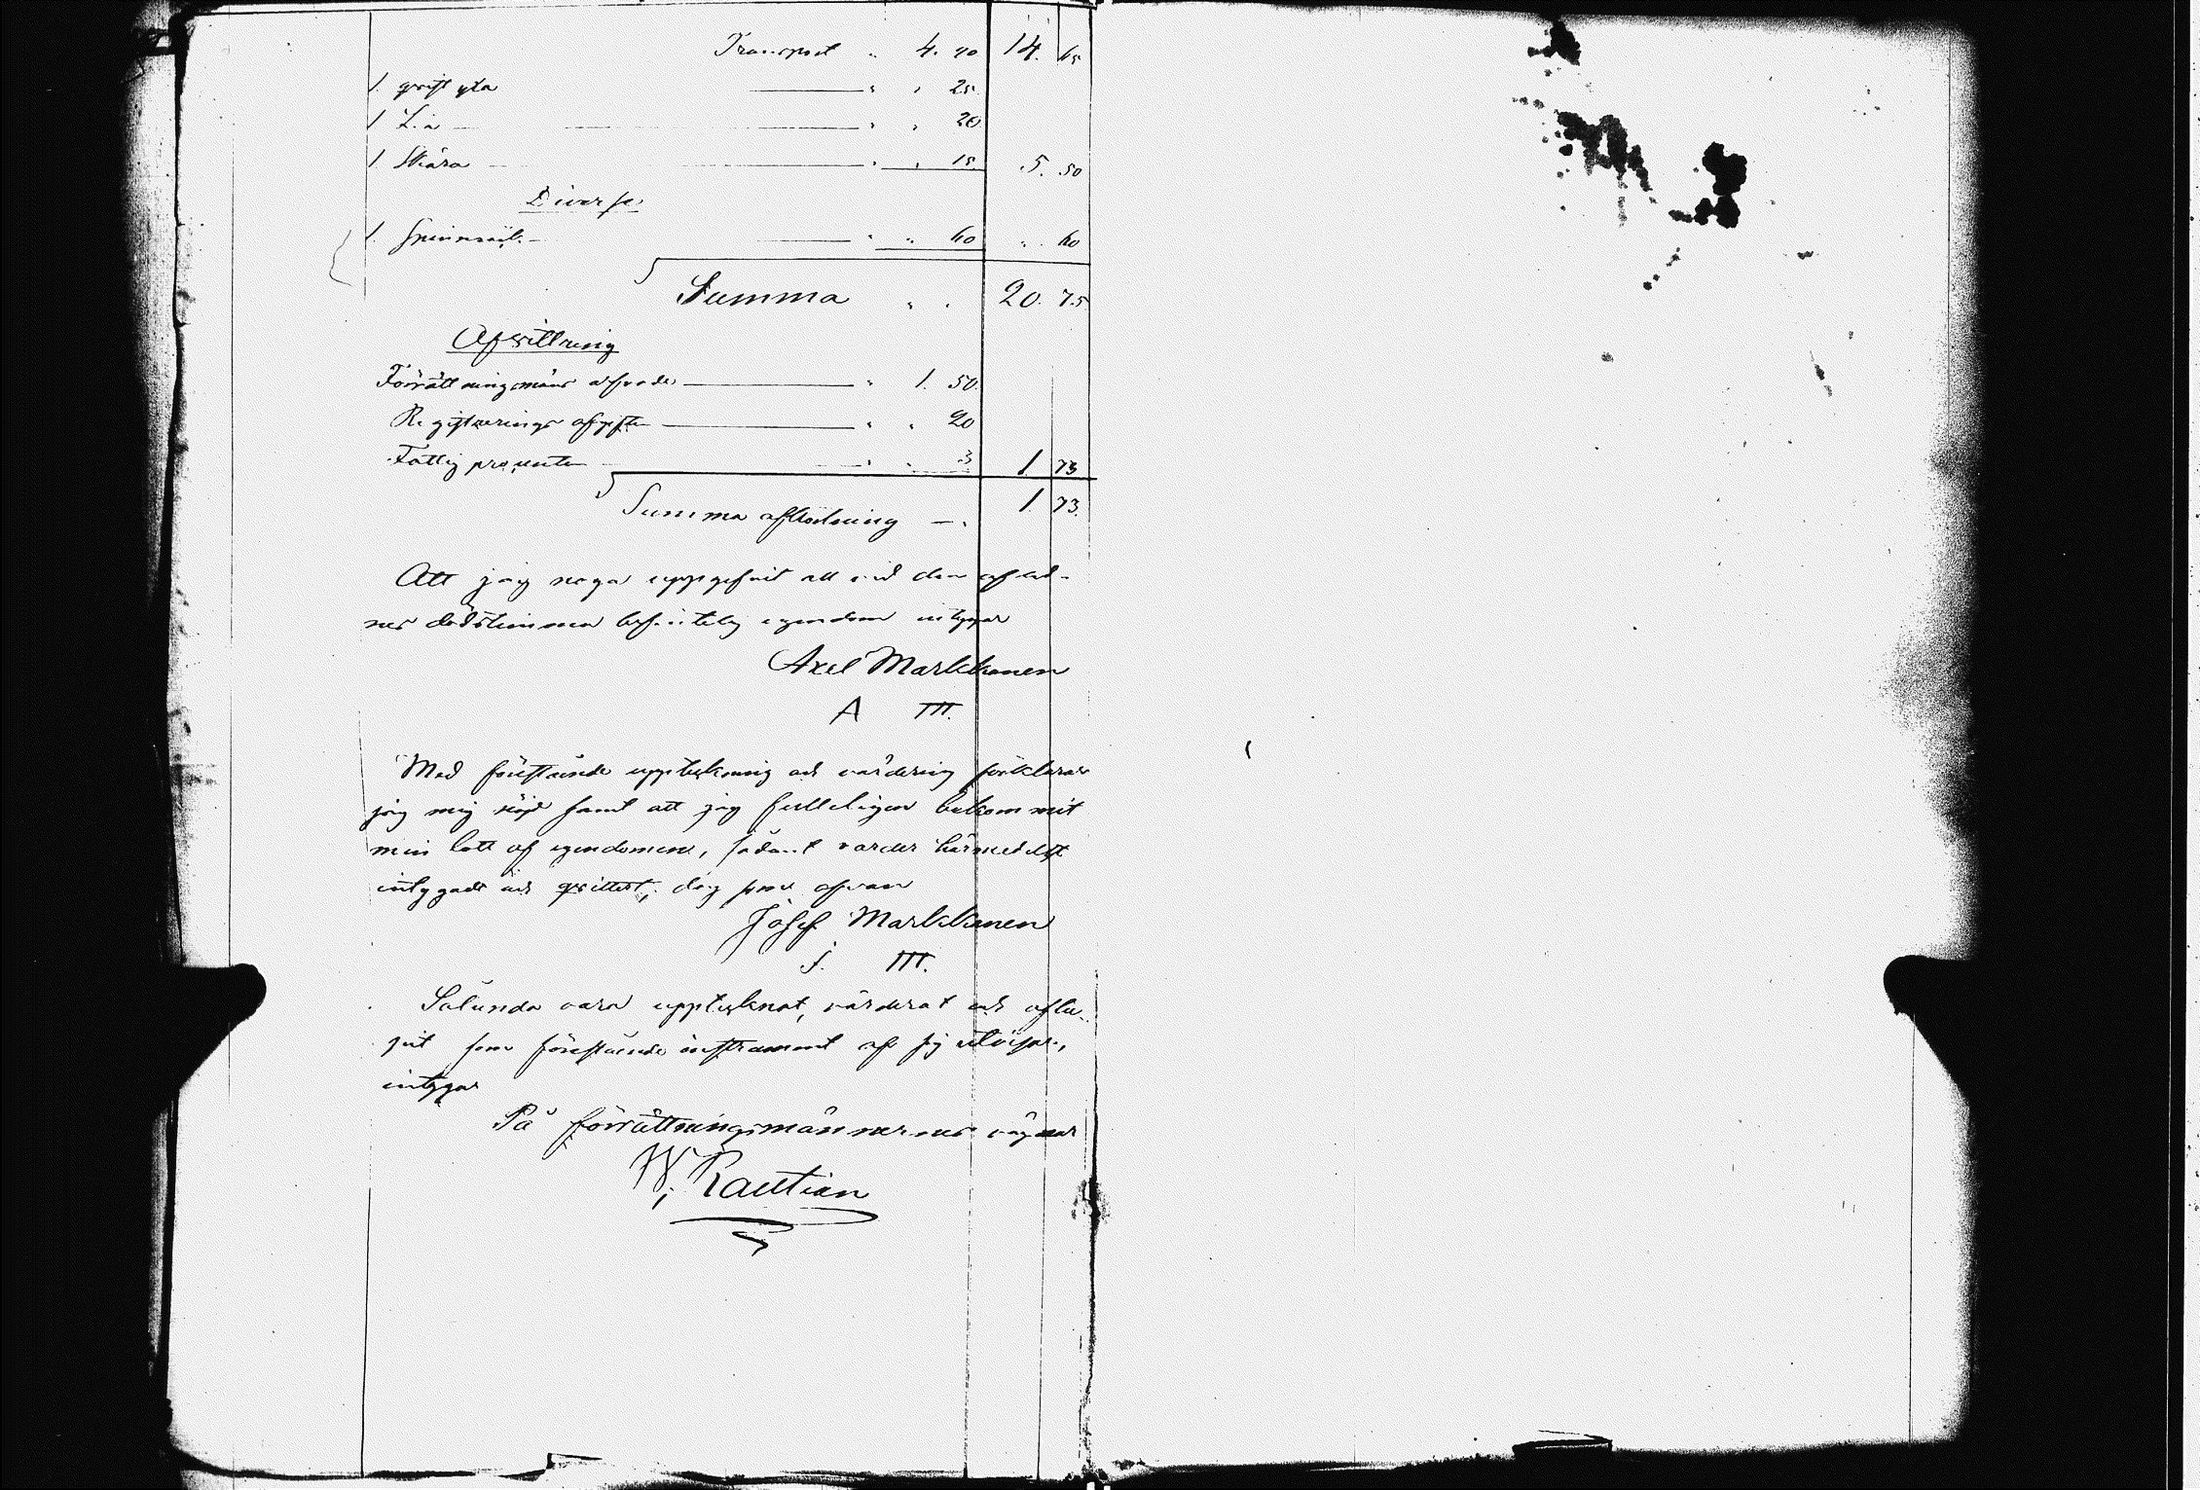 Transport " 4. 90 14. 65
1. qvistyxa " " 25
1 Lia " " 20
1 Skära " " 15. 5. 50
Diverse
1. Spinnrock " " 60 " 60
Summa " " 20. 75
Afvittring
Förrättningsmäns arfvode " 1. 50.
Registrerings afgiften " " 20
Fattig procenten " " 3 1 73
Summa afkortning 1 73.
Att jag noga uppgifvit all vid den aflid-
nes dödstimma befintelig egendom intygar
Axel Markkanen
A M.
Med förestående uppteckning och värdering förklarar
jag mig nöjd samt att jag fulleligen bekommit
min lott af egendomene, sådant varder härmedelst
intygadt och qvitterat, dag som ofvan
Josef Markkanen
J. M.
Sålunda vara upptecknat, värderat och aflu-
pit som förestående instrument af sig utvisar,
intygar
På förrättningsmännernes vägnar
W. Rautian